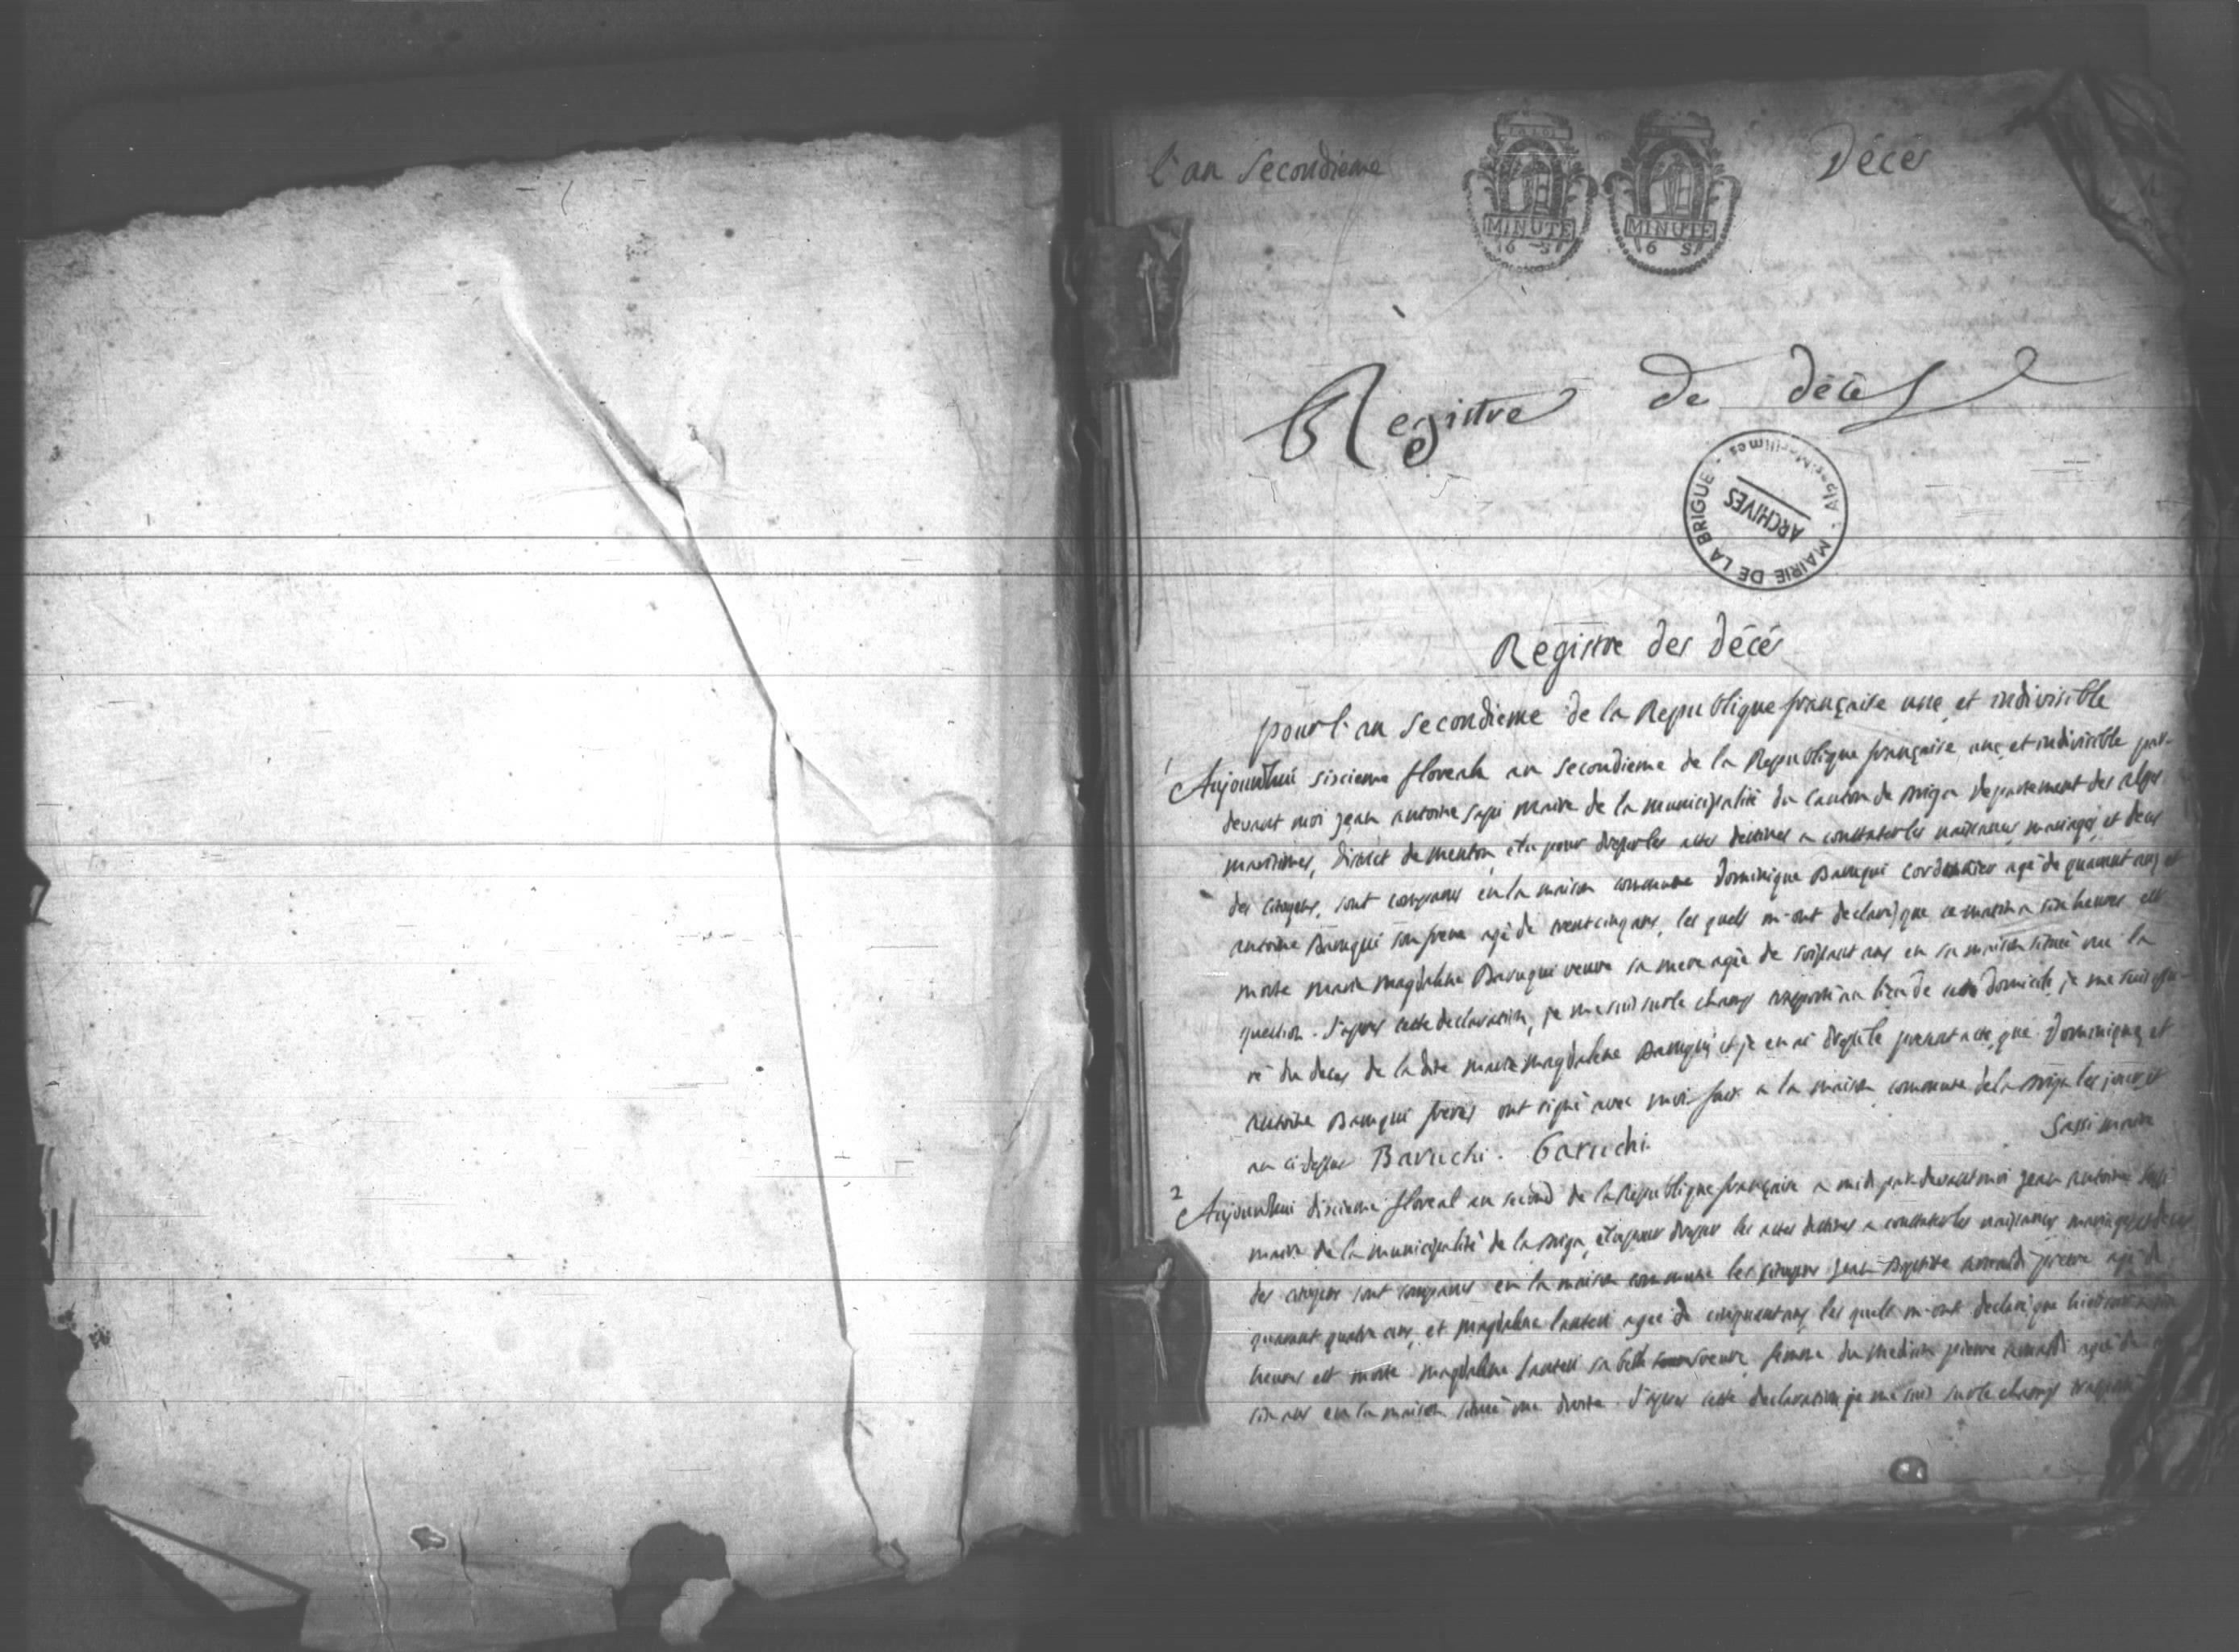 l'an secondieme
Décés
MINUTE
6 S
MINUTE
6 S
Registre de décés
MAIRIE DE LA BRIGUE - Alpes-Maritimes -
ARCHIVES
Registre des décés
pour l'an secondieme de la Republique française une et indivisible
1
Aujourdhui siscieme floreal an secondieme de la Republique française une et indivisible par-
devant moi jean antoine sassi maire de la municipalité du canton de Briga departement des alpes
maritimes, district de menton elu pour dresser les actes destines a constater les naissances mariages et deces
des citoyens, sont comparus en la maison commune Dominique Baruqui cordonnier agé de quarant ans et
antoine Baruqui son frere agé de trent cinq ans, les quels m'ont declaré que ce matin a six heures est
morte marie magdalene Baruqui veuve sa mere agée de soixant ans en sa maison située rue la
question. D'apres cette declaration, je me suis sur le champ transporté au lieu de ce domicile, je me suis assu-
ré du deces de la dite marie magdalene Baruqui et je en ai dressé le present acte, que Dominique et
antoine Baruqui freres ont signé avec moi. fait a la maison commune de la Briga les jour et
an ci-dessus Baruchi. Baruchi.
Sassi maire
2
Aujourdhui discieme floreal an second de la Republique française a midi par devant moi jean antoine sassi
maire de la municipalité de la Briga, elu pour dresser les actes destines a constater les naissances mariages et deces
des citoyens sont comparus en la maison commune les citoyens jean Baptiste pretre agé de
quarant quatre ans, et magdalene lanteri agée de cinquant ans les quels m'ont declaré que
heures est morte magdalene lanteri sa belle veuve, femme du medicin pierre agée de
six ans en la maison située rue droite. D'apres cette declaration je me suis sur le champ transporté